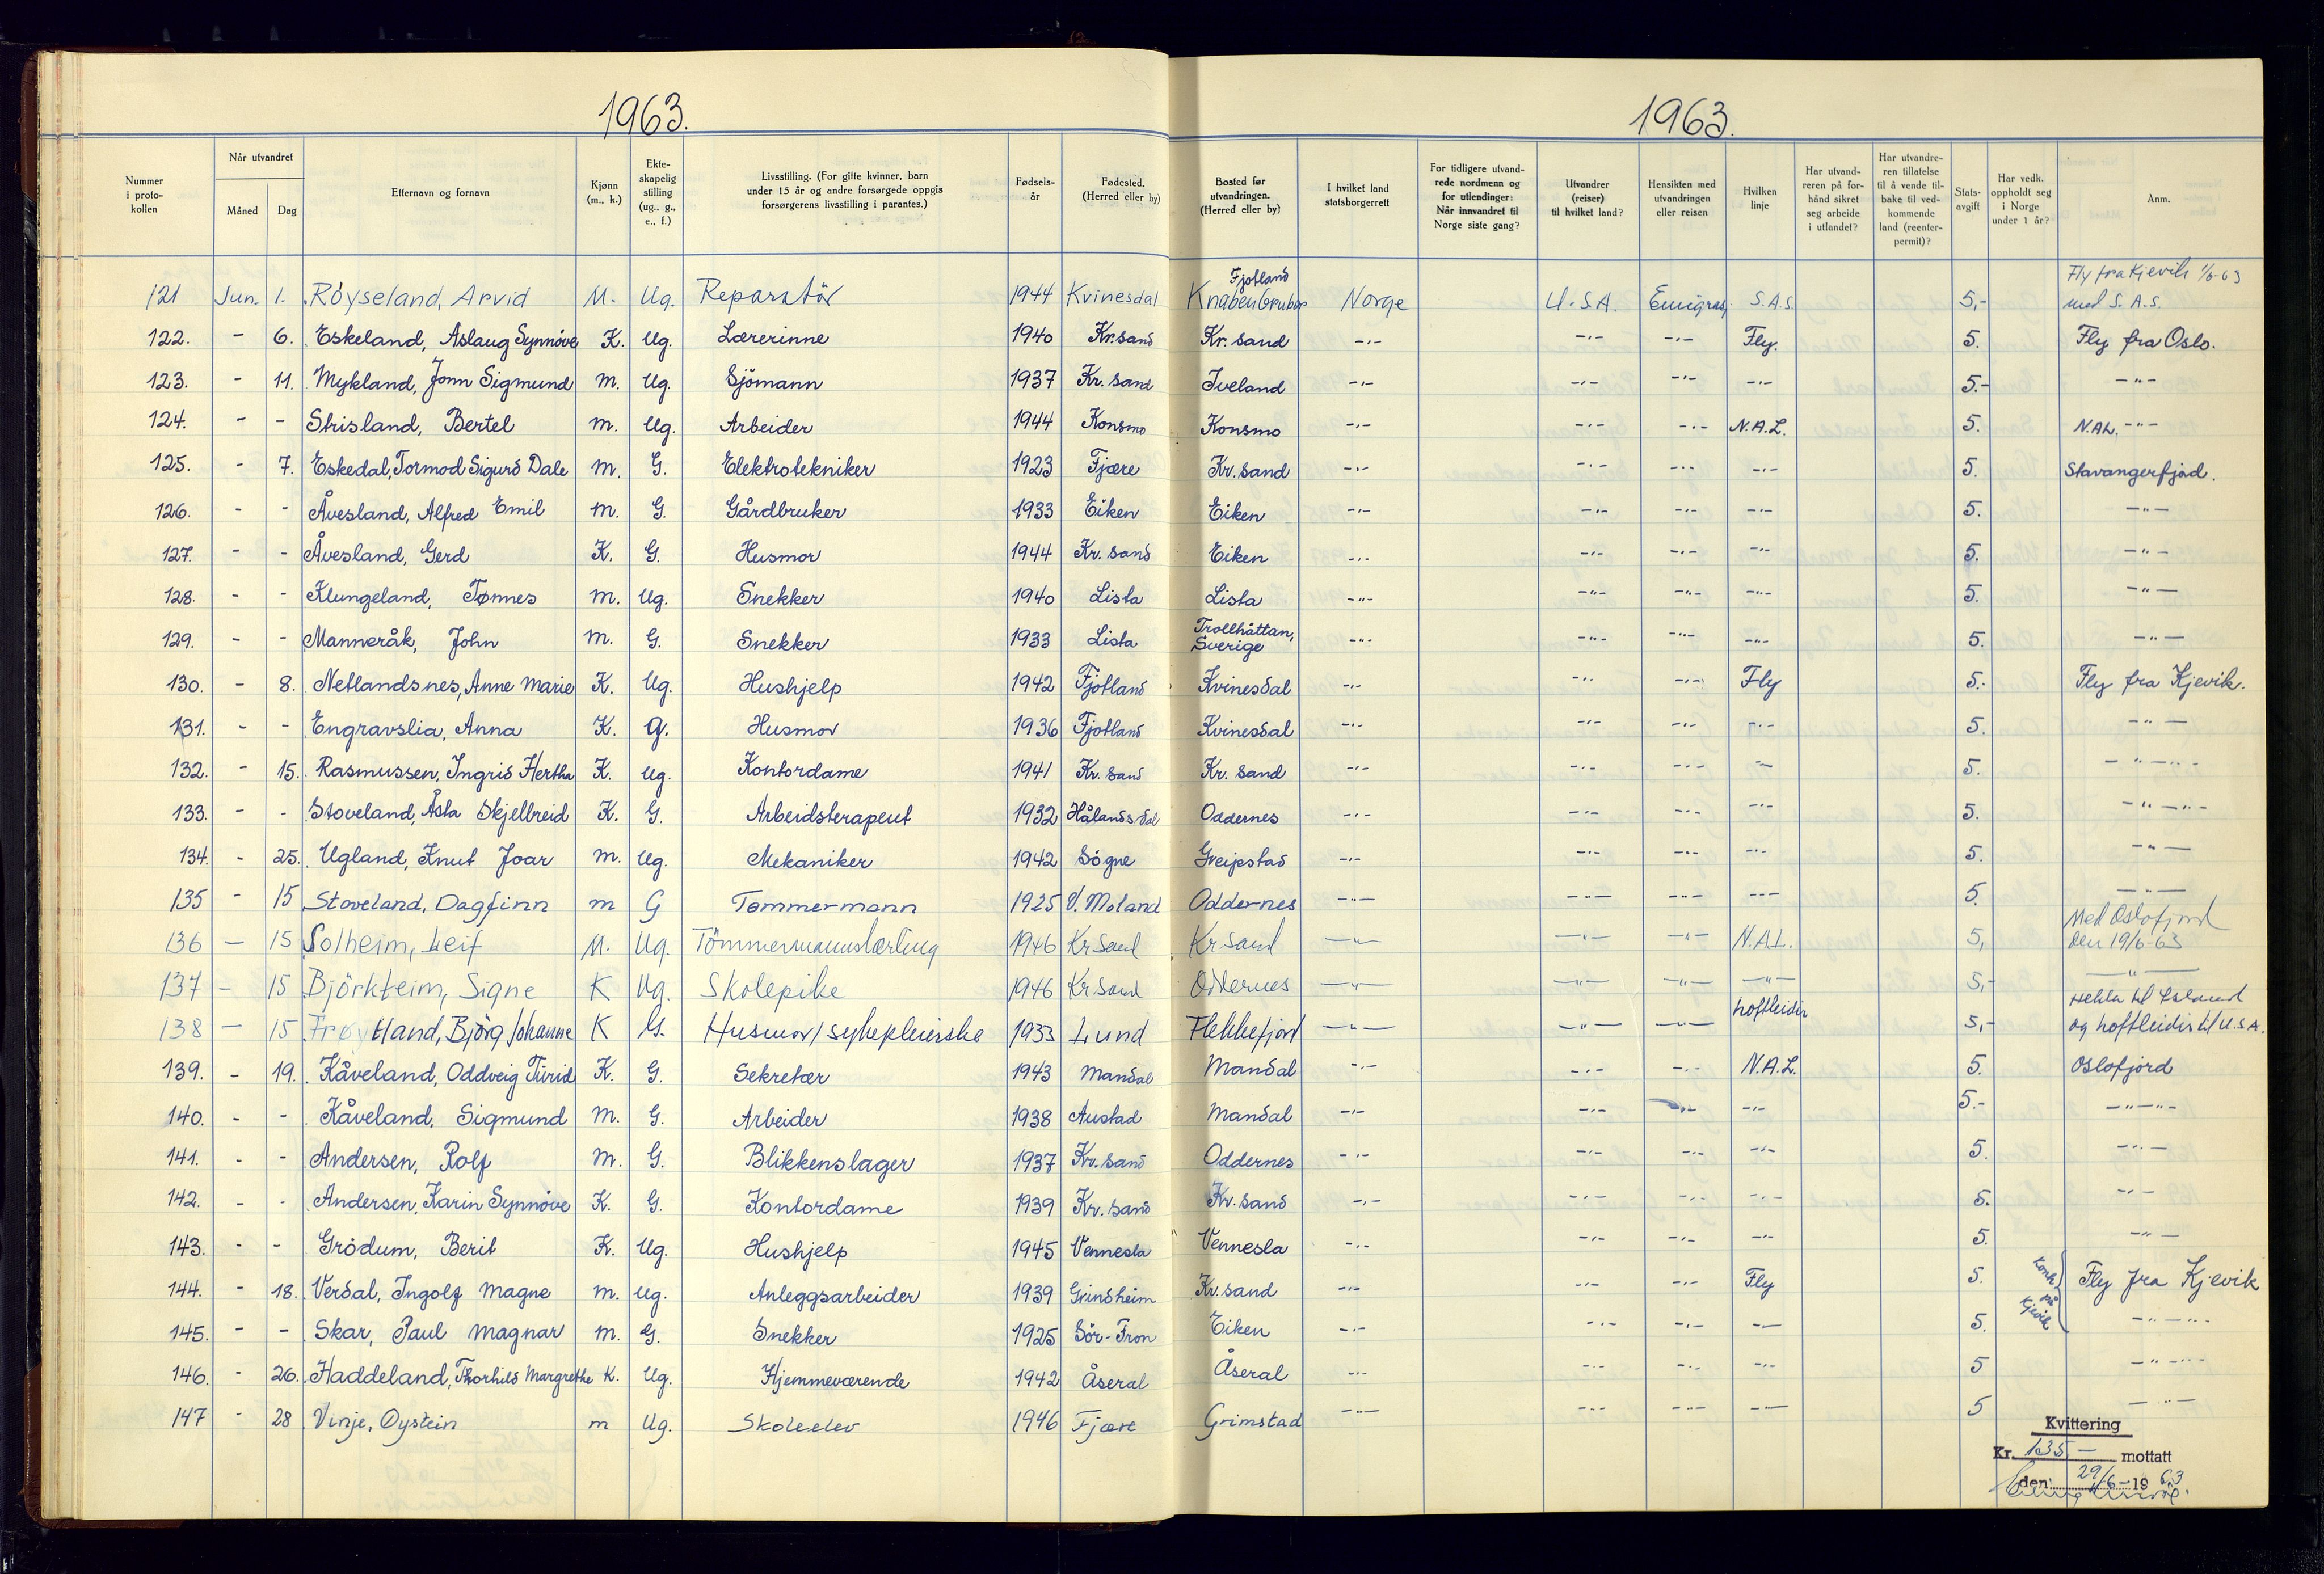 1963.
1963.
Nummer i proto-kollen | Når utvandret Måned | Dag | Etternavn og fornavn | Kjønn (m., k.) | Ekte-skapelig stilling (ug., g., e., f.) | Livsstilling. (For gifte kvinner, barn under 15 år og andre forsørgede oppgis forsørgerens livsstilling i parantes.) | Fødsels-år | Fødested. (Herred eller by) | Bosted før utvandringen. (Herred eller by) | I hvilket land statsborgerrett | For tidligere utvand-rede nordmenn og for utlendinger: Når innvandret til Norge siste gang? | Utvandrer (reiser) til hvilket land? | Hensikten med utvandringen eller reisen | Hvilken linje | Har utvand-reren på for-hånd sikret seg arbeide i utlandet? | Har utvandre-ren tillatelse til å vende til-bake til ved-kommende land (reenter-permit)? | Stats-avgift | Har vedk. oppholdt seg i Norge under 1 år? | Anm.
121 Jun. 1. Röyseland, Arvid M. Ug. Reparatör 1944 Kvinesdal Fjotland Knaben Gruber Norge U.S.A. Emigras, S.A.S. 5,- Fly fra Kjevik 1/6-63 med S.A.S.
122. - 6. Eskeland, Aslaug Synnöve K. Ug. Lærerinne 1940 Kr.sand Kr.sand -"- -"- -"- Fly. 5. Fly fra Oslo.
123. - 11. Mykland, Jonn Sigmund m. Ug. Sjömann 1937 Kr.sand Iveland -"- -"- -"- -"- 5.- -"-
124. - - Strisland, Bertel m. Ug. Arbeider 1944 Konsmo Konsmo -"- -"- -"- N.A.L. 5. N.A.L. -"-
125. - 7. Eskedal, Tormod Sigurd Dale m. G. Elektrotekniker 1923 Fjære Kr.sand -"- -"- -"- -"- 5. Stavangerfjord.
126. - - Åvesland, Alfred Emil m. G. Gårdbruker 1933 Eiken Eiken -"- -"- -"- -"- 5. -"-
127. - - Åvesland, Gerd K. G. Husmor 1944 Kr.sand Eiken -"- -"- -"- -"- 5. -"-
128. - - Klungeland, Tønnes m. Ug. Snekker 1940 Lista Lista -"- -"- -"- -"- 5. -"-
129. - - Manneråk, John m. G. Snekker 1933 Lista Trollhättan, Sverige -"- -"- -"- -"- 5. -"-
130. - 8. Netlandsnes, Anne Marie K. Ug. Hushjelp 1942 Fjotland Kvinesdal -"- -"- -"- Fly 5.- Fly fra Kjevik.
131. - - Engravslia, Anna K. G. Husmor 1936 Fjotland Kvinesdal -"- -"- -"- -"- 5. -"-
132. - 15. Rasmussen, Ingrid Hertha K. Ug. Kontordame 1941 Kr.sand Kr.sand -"- -"- -"- -"- 5. -"-"-
133. - - Stoveland, Åsta Skjelbreid K. G. Arbeidsterapeut 1932 Hålandsdal Oddernes -"- -"- -"- -"- 5. -"-"-
134. - 25. Ugland, Knut Joar m. Ug. Mekaniker 1942 Sögne Greipstad -"- -"- -"- -"- 5. -"-
135 - 15 Stoveland, Dagfinn m G Tømmermann 1925 V. Moland Oddernes -"- -"- -"- -"- 5. -"-
136 - 15 Solheim, Leif M. Ug. Tömmermannslærling 1946 Kr Sand Kr Sand -"- -"- -"- N.A.L. 5, Med Oslofjord den 19/6-63
137 - 15 Björkteim, Signe K Ug. Skolepike 1946 Kr Sand Oddernes -"- -"- -"- -"- 5,- -"-
138 - 15 Frøytland, Björg Johanne K G. Husmor/sykepleierske 1933 Lund Flekkefjord -"- -"- -"- Loftleidir 5,- Hekla til Island og Loftleidir til U.S.A.
139. - 19. Kåveland, Oddveig Turid K. G. Sekretær 1943 Mandal Mandal -"- -"- -"- N.A.L. 5. Oslofjord
140. - - Kåveland, Sigmund m. G. Arbeider 1938 Austad Mandal -"- -"- -"- -"- 5.- -"-"-
141. - - Andersen, Rolf m. G. Blikkenslager 1937 Kr.sand Oddernes -"- -"- -"- -"- 5. -"-
142. - - Andersen, Karin Synnöve K. G. Kontordame 1939 Kr.sand Kr.sand -"- -"- -"- -"- 5. -"-
143. - - Grödum, Berit K. Ug. Hushjelp 1945 Vennesla Vennesla -"- -"- -"- -"- 5. -"-
144. - 18. Verdal, Ingolf Magne m. Ug. Anleggsarbeider 1939 Grindheim Kr.sand -"- -"- -"- Fly 5. Kont. på Kjevik Fly fra Kjevik
145. - - Skar, Paul Magnar m. G. Snekker 1925 Sör-Fron Eiken -"- -"- -"- -"- 5. -"-"-
146. - 26. Haddeland, Thorhild Margrethe K. Ug. Hjemmeværende 1942 Åseral Åseral -"- -"- -"- -"- 5 -"-"-
147 - 28 Vinje, Øystein m Ug. Skoleelev 1946 Fjære Grimstad -"- -"- -"- -"- 5 -"-
Kvittering
Kr. 135,- mottatt
den 29/6-1963